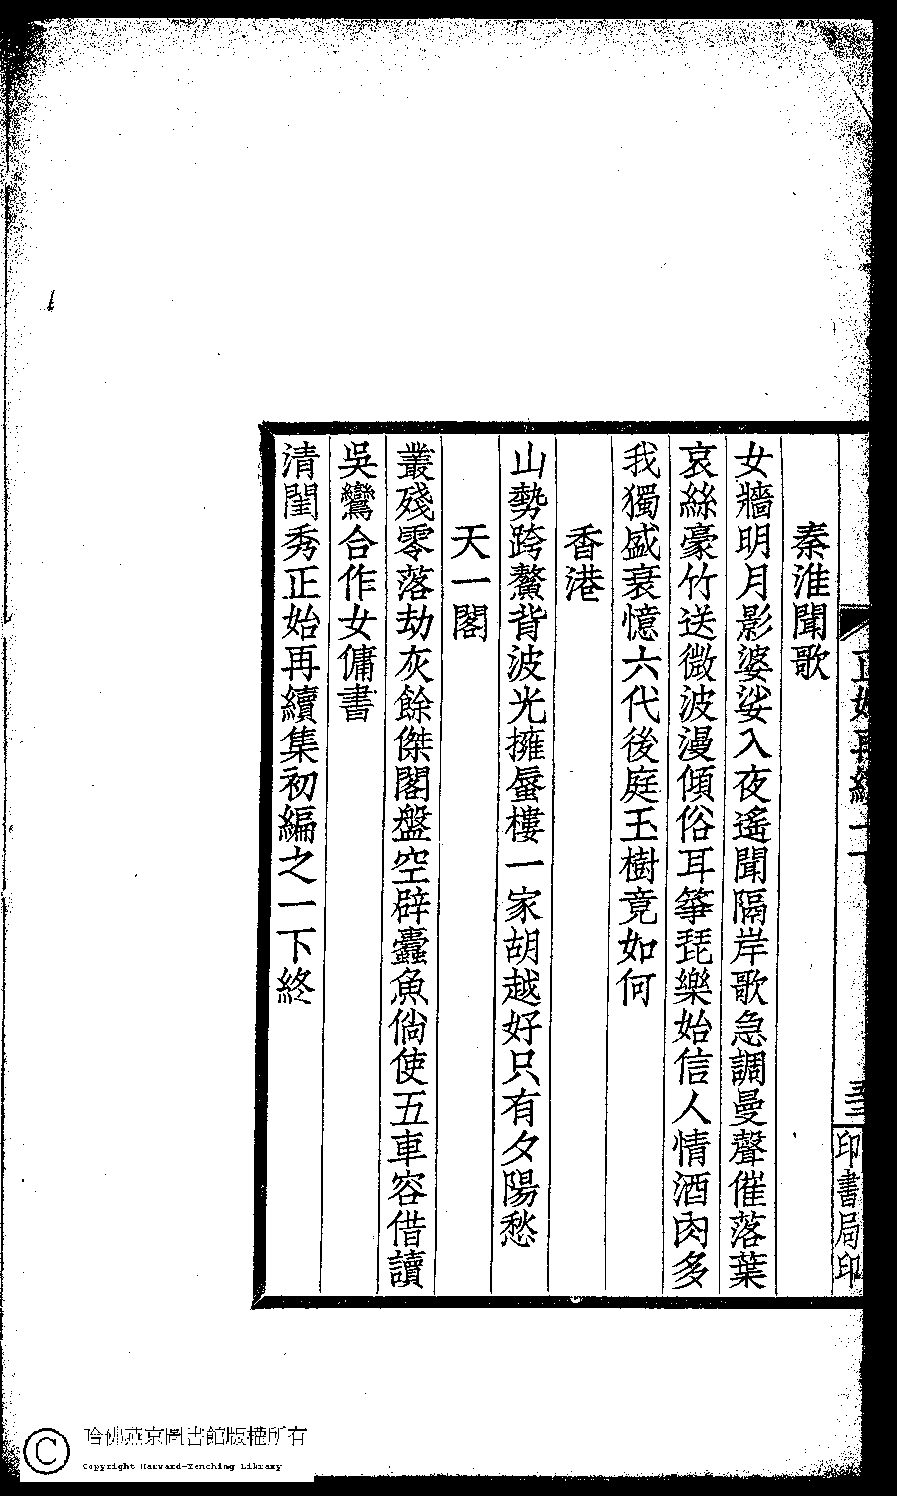 秦淮聞歌
女牆明月影婆娑入夜遙聞隔岸歌急調曼聲催落葉
哀絲豪竹送微波漫傾俗耳箏琵樂始信人情酒肉多
我獨盛衰憶六代後庭玉樹竟如何
香港
山勢跨鰲背波光擁蜃樓一家胡越好只有夕陽愁
天一閣
叢殘零落劫灰餘傑閣盤空辟蠹魚倘使五車容借讀
吳鸞合作女傭書
清閨秀正始再續集初編之一下終
印書局印
哈佛燕京圖書館版權所有
Copyright Harvard-Yenching Library